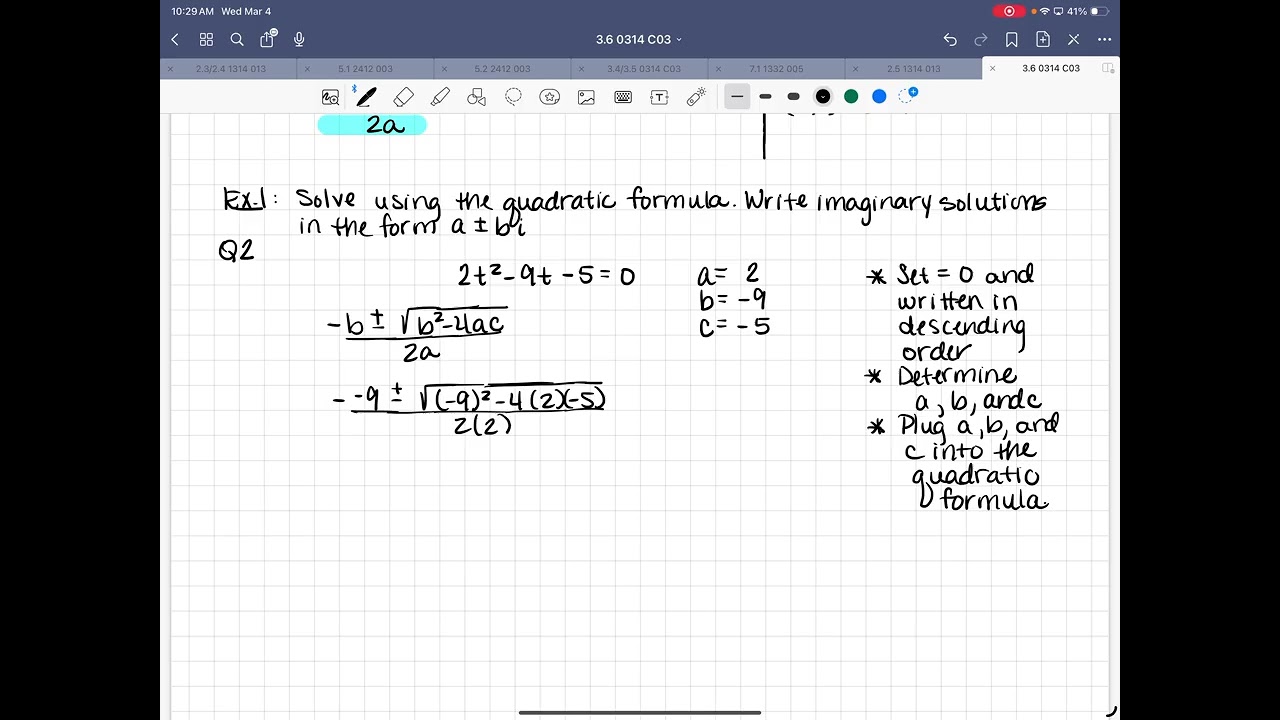 10:29 AM Wed Mar 4
41%
3.6 0314 C03
2.3/2.4 1314 013
5.1 2412 003
5.2 2412 003
3.4/3.5 0314 C03
7.1 1332 005
2.5 1314 013
3.6 0314 C03
2a
Ex.1: Solve using the quadratic formula. Write imaginary solutions
in the form a ± bi
Q2
2t² - 9t - 5 = 0
-b ± √b²-4ac
2a
- -9 ± √(-9)² - 4(2)(-5)
2(2)
a = 2
b = -9
c = -5
* Set = 0 and
written in
descending
order
* Determine
a, b, and c
* Plug a, b, and
c into the
quadratic
formula.